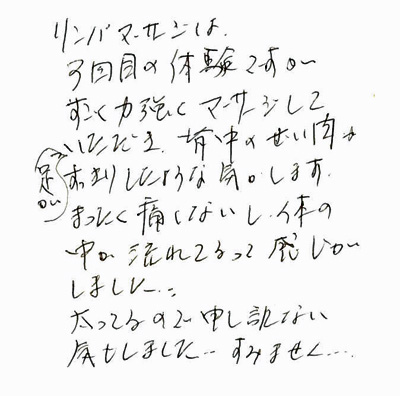 リンパマッサージは、
3回目の体験ですが
すごく力強くマッサージして
いただき、背中のぜい肉が
足が
すっきりしたような気がします。
まったく痛くないし、体の
中が流れてるって感じが
しました…。
太ってるので申し訳ない
気もしました…すみません…。